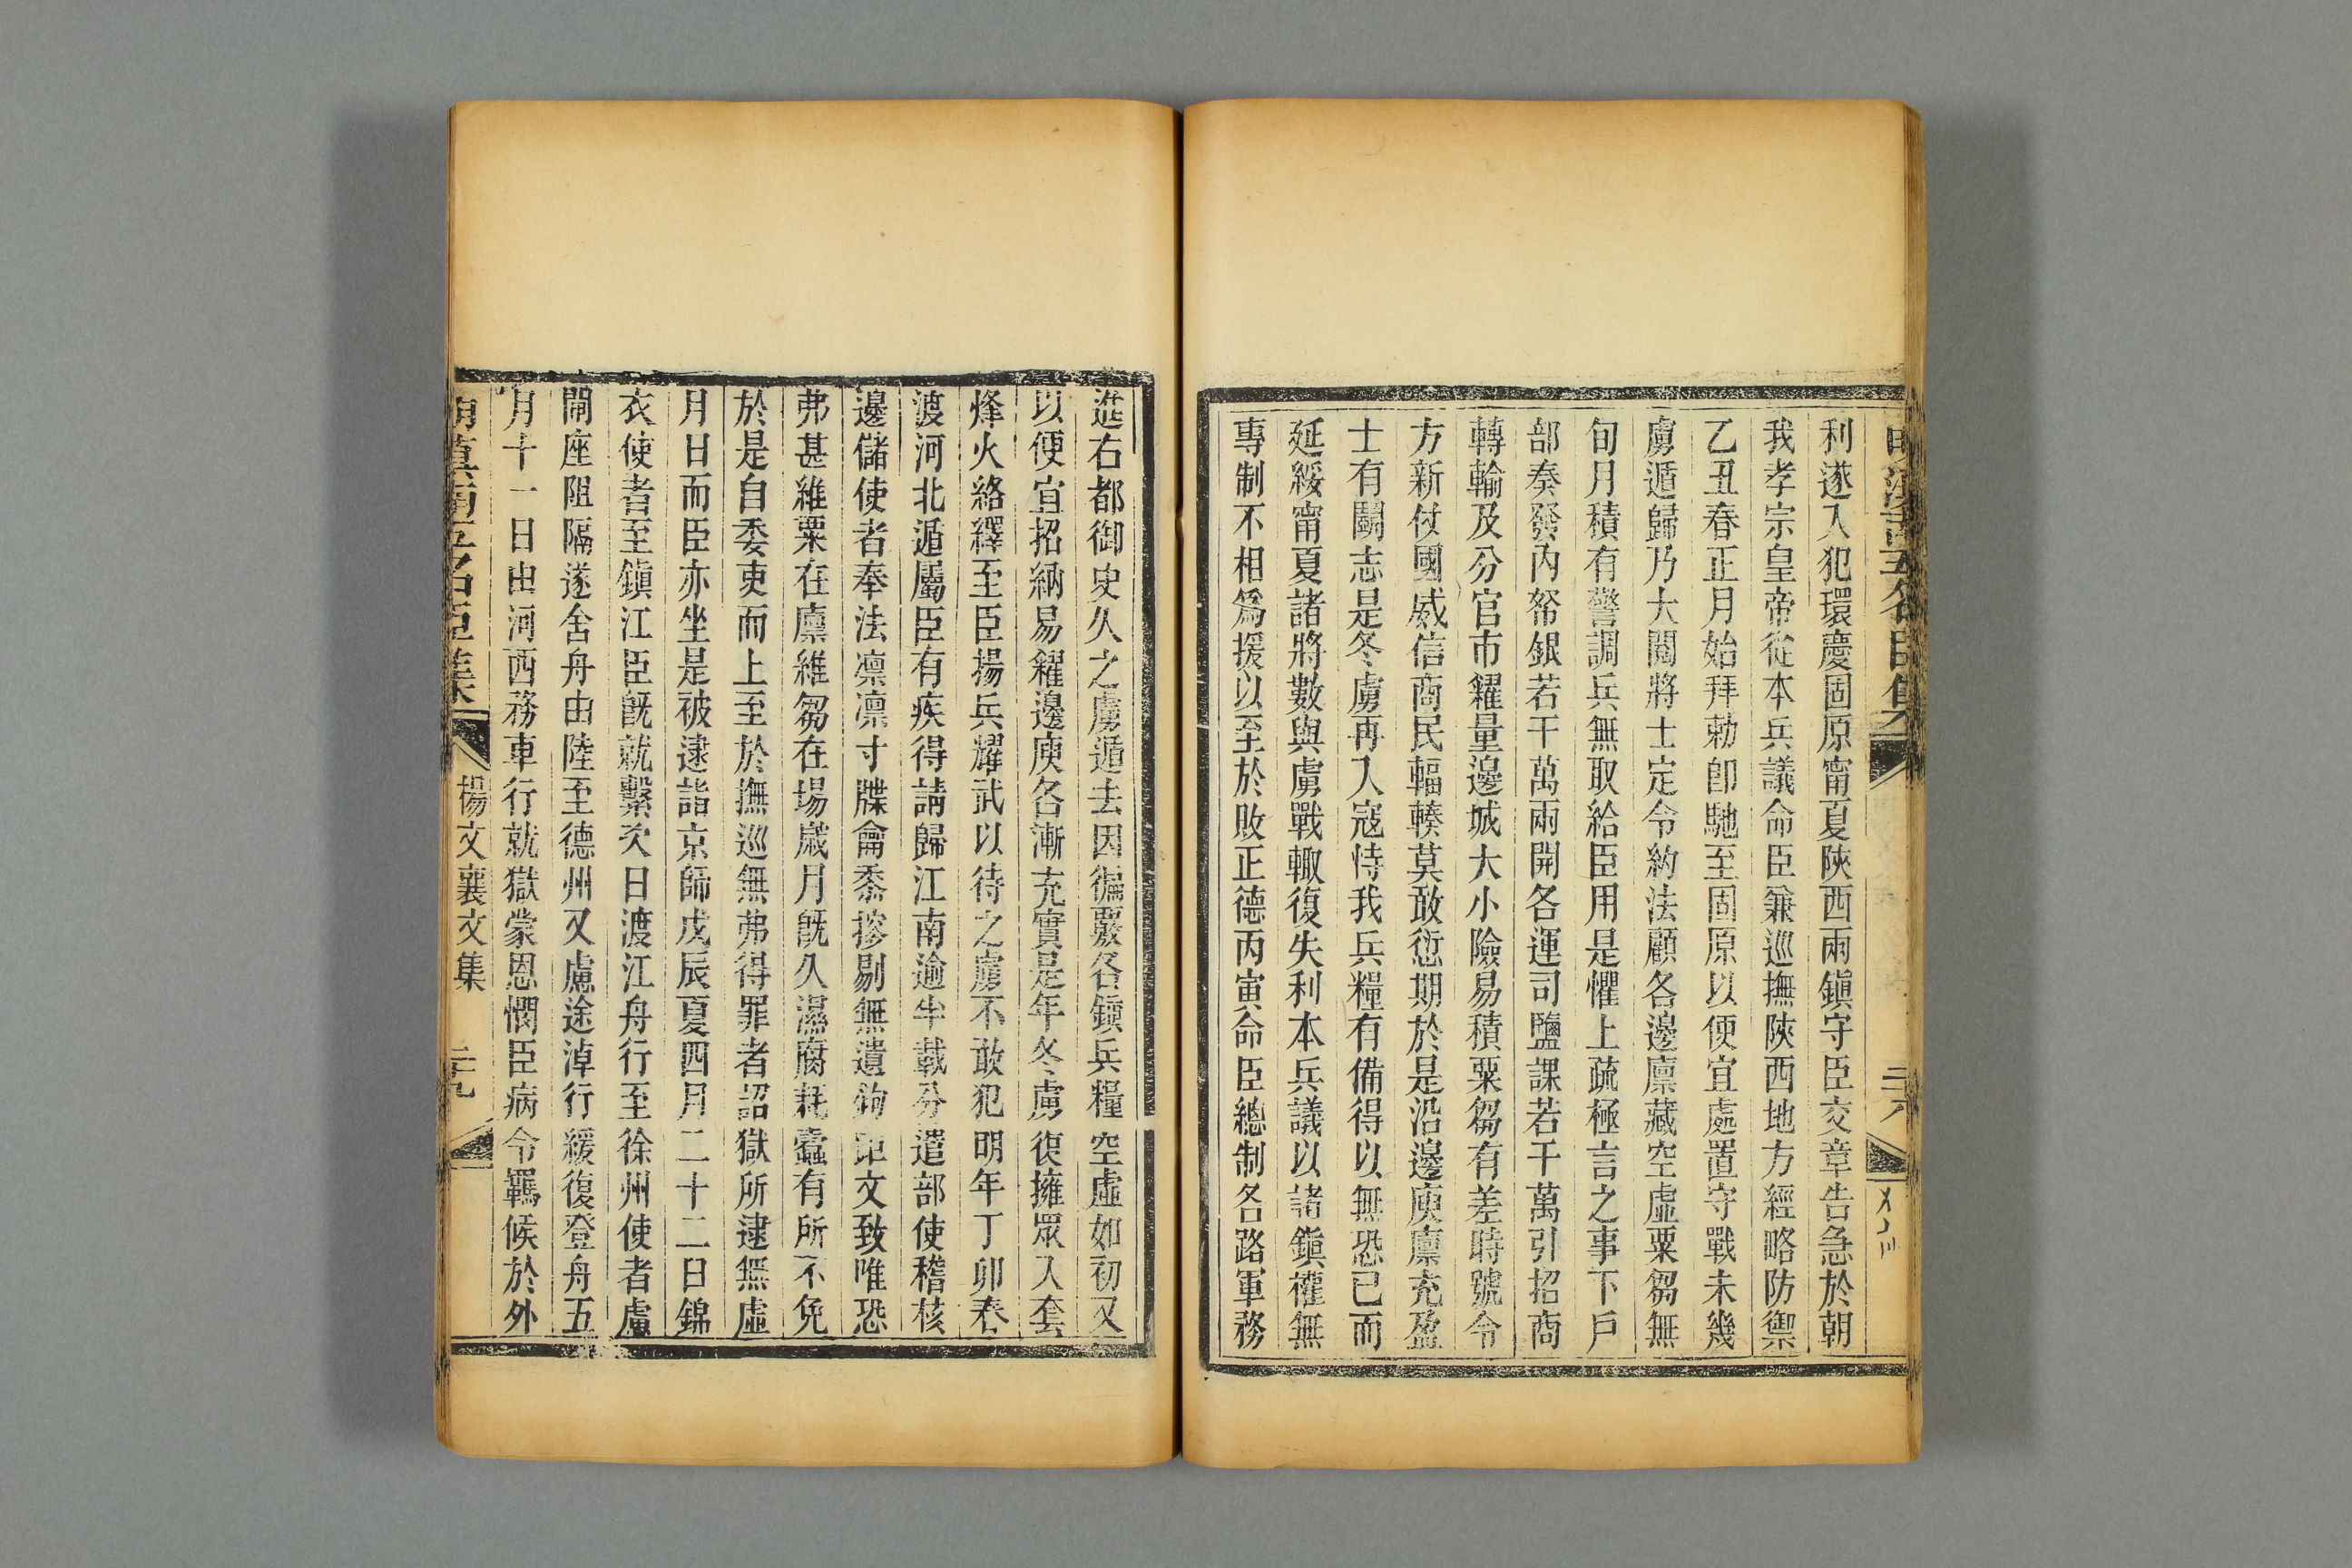 利遂入犯環慶固原甯夏陝西兩鎮守臣交章告急於朝
我孝宗皇帝從本兵議命臣兼巡撫陝西地方經略防禦
乙丑春正月始拜勅卽馳至固原以便宜處置守戰未幾
虜遁歸乃大閱將士定令約法顧各邊廪藏空虛粟芻無
旬月積有警調兵無取給臣用是懼上疏極言之事下戶
部奏發內帑銀若干萬兩開各運司鹽課若干萬引招商
轉輸及分官市糴量邊城大小險易積粟芻有差時號令
方新仗國威信商民輻輳莫敢愆期於是沿邊庾廪充盈
士有鬭志是冬虜再入寇恃我兵糧有備得以無恐已而
延綏甯夏諸將數與虜戰輙復失利本兵議以諸鎮權無
專制不相爲援以至於敗正德丙寅命臣總制各路軍務
進右都御史久之虜遁去因徧覈各鎮兵糧空虛如初又
以便宜招納易糴邊庾各漸充實是年冬虜復擁眾入套
烽火絡繹至臣揚兵耀武以待之虜不敢犯明年丁卯春
渡河北遁屬臣有疾得請歸江南逾半載分遣部使稽核
邊儲使者奉法凛凛寸牒龠黍摉剔無遺鉤距文致唯恐
弗甚維粟在廪維芻在場歲月旣久濕腐耗蠧有所不免
於是自委吏而上至於撫巡無弗得罪者詔獄所逮無虛
月日而臣亦坐是被逮詣京師戊辰夏四月二十二日錦
衣使者至鎮江臣旣就繫次日渡江舟行至徐州使者慮
閘座阻隔遂舍舟由陸至德州又慮途淖行緩復登舟五
月十一日由河西務車行就獄蒙恩憫臣病令羈候於外
楊文襄文集